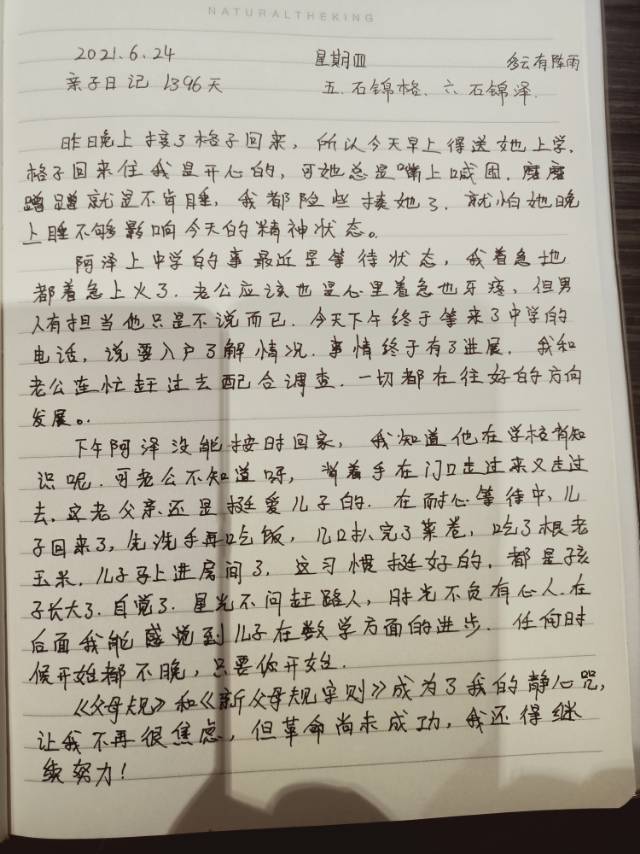 NATURALTHEKING
2021.6.24 星期四 多云有阵雨
亲子日记 1396天 五.石锦格、六.石锦泽.
昨晚上接了格子回来，所以今天早上得送她上学.
格子回来住我是开心的，可她总是嘴上喊困.磨磨
蹭蹭就是不肯睡，我都险些揍她了.就怕她晚
上睡不够影响今天的精神状态。
阿泽上中学的事最近是等待状态，我着急地
都着急上火了.老公应该也是心里着急也牙疼，但男
人有担当他只是不说而已.今天下午终于等来了中学的
电话，说要入户了解情况.事情终于有了进展.我和
老公连忙赶过去配合调查.一切都在往好的方向
发展。
下午阿泽没能按时回家，我知道他在学校背知
识呢.可老公不知道呀，背着手在门口走过来又走过
去.这老父亲还是挺爱儿子的.在耐心等待中，儿
子回来了，先洗手再吃饭，几口扒完了菜卷，吃了根老
玉米.儿子马上进房间了.这习惯挺好的.都是孩
子长大了.自觉了.星光不问赶路人，时光不负有心人.在
后面我能感觉到儿子在数学方面的进步.任何时
候开始都不晚，只要你开始.
《父母规》和《新父母规守则》成为了我的静心咒，
让我不再很焦虑，但革命尚未成功，我还得继
续努力！